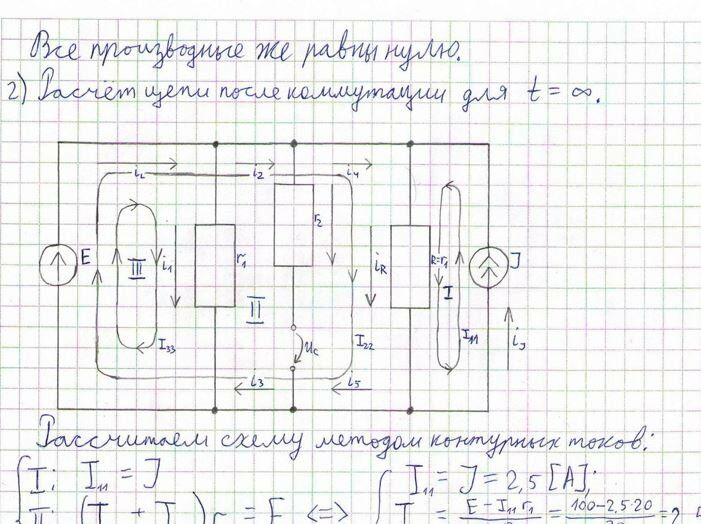 Все производные же равны нулю.
2) Расчёт цепи после коммутации для t = ∞.
iL i2 i4
E III i1 r1 r2 iR R=r1 I J
II
I33 uC I22 I11 iJ
i3 i5
Рассчитаем схему методом контурных токов:
I: I11 = J I11 = J = 2,5 [A];
= E <=> = E - I11 r1 = 100-2,5·20